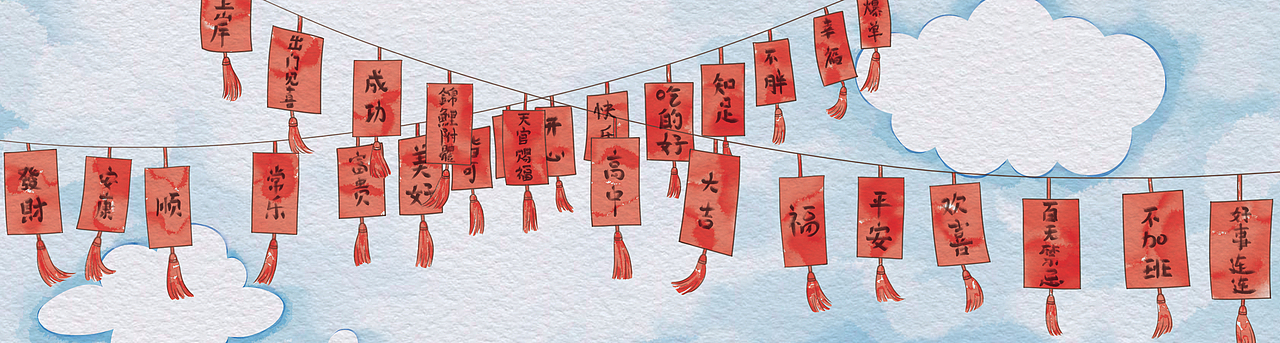 上岸
出门见喜
成功
錦鯉附體
天官赐福
开心
快乐
吃的好
知足
不胖
幸福
爆单
發財
安康
顺
常乐
富贵
美好
可
高中
大吉
福
平安
欢喜
百无禁忌
不加班
好事连连